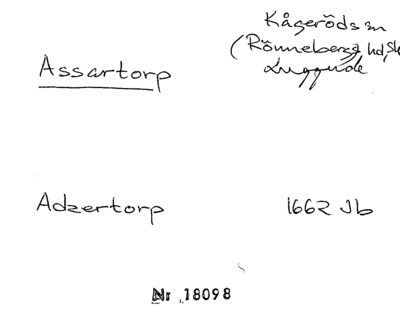 Kågeröds sn
Assartorp (Rönnebergs hd, Sk
Luggude
Adzertorp 1662 Jb
Nr 18098